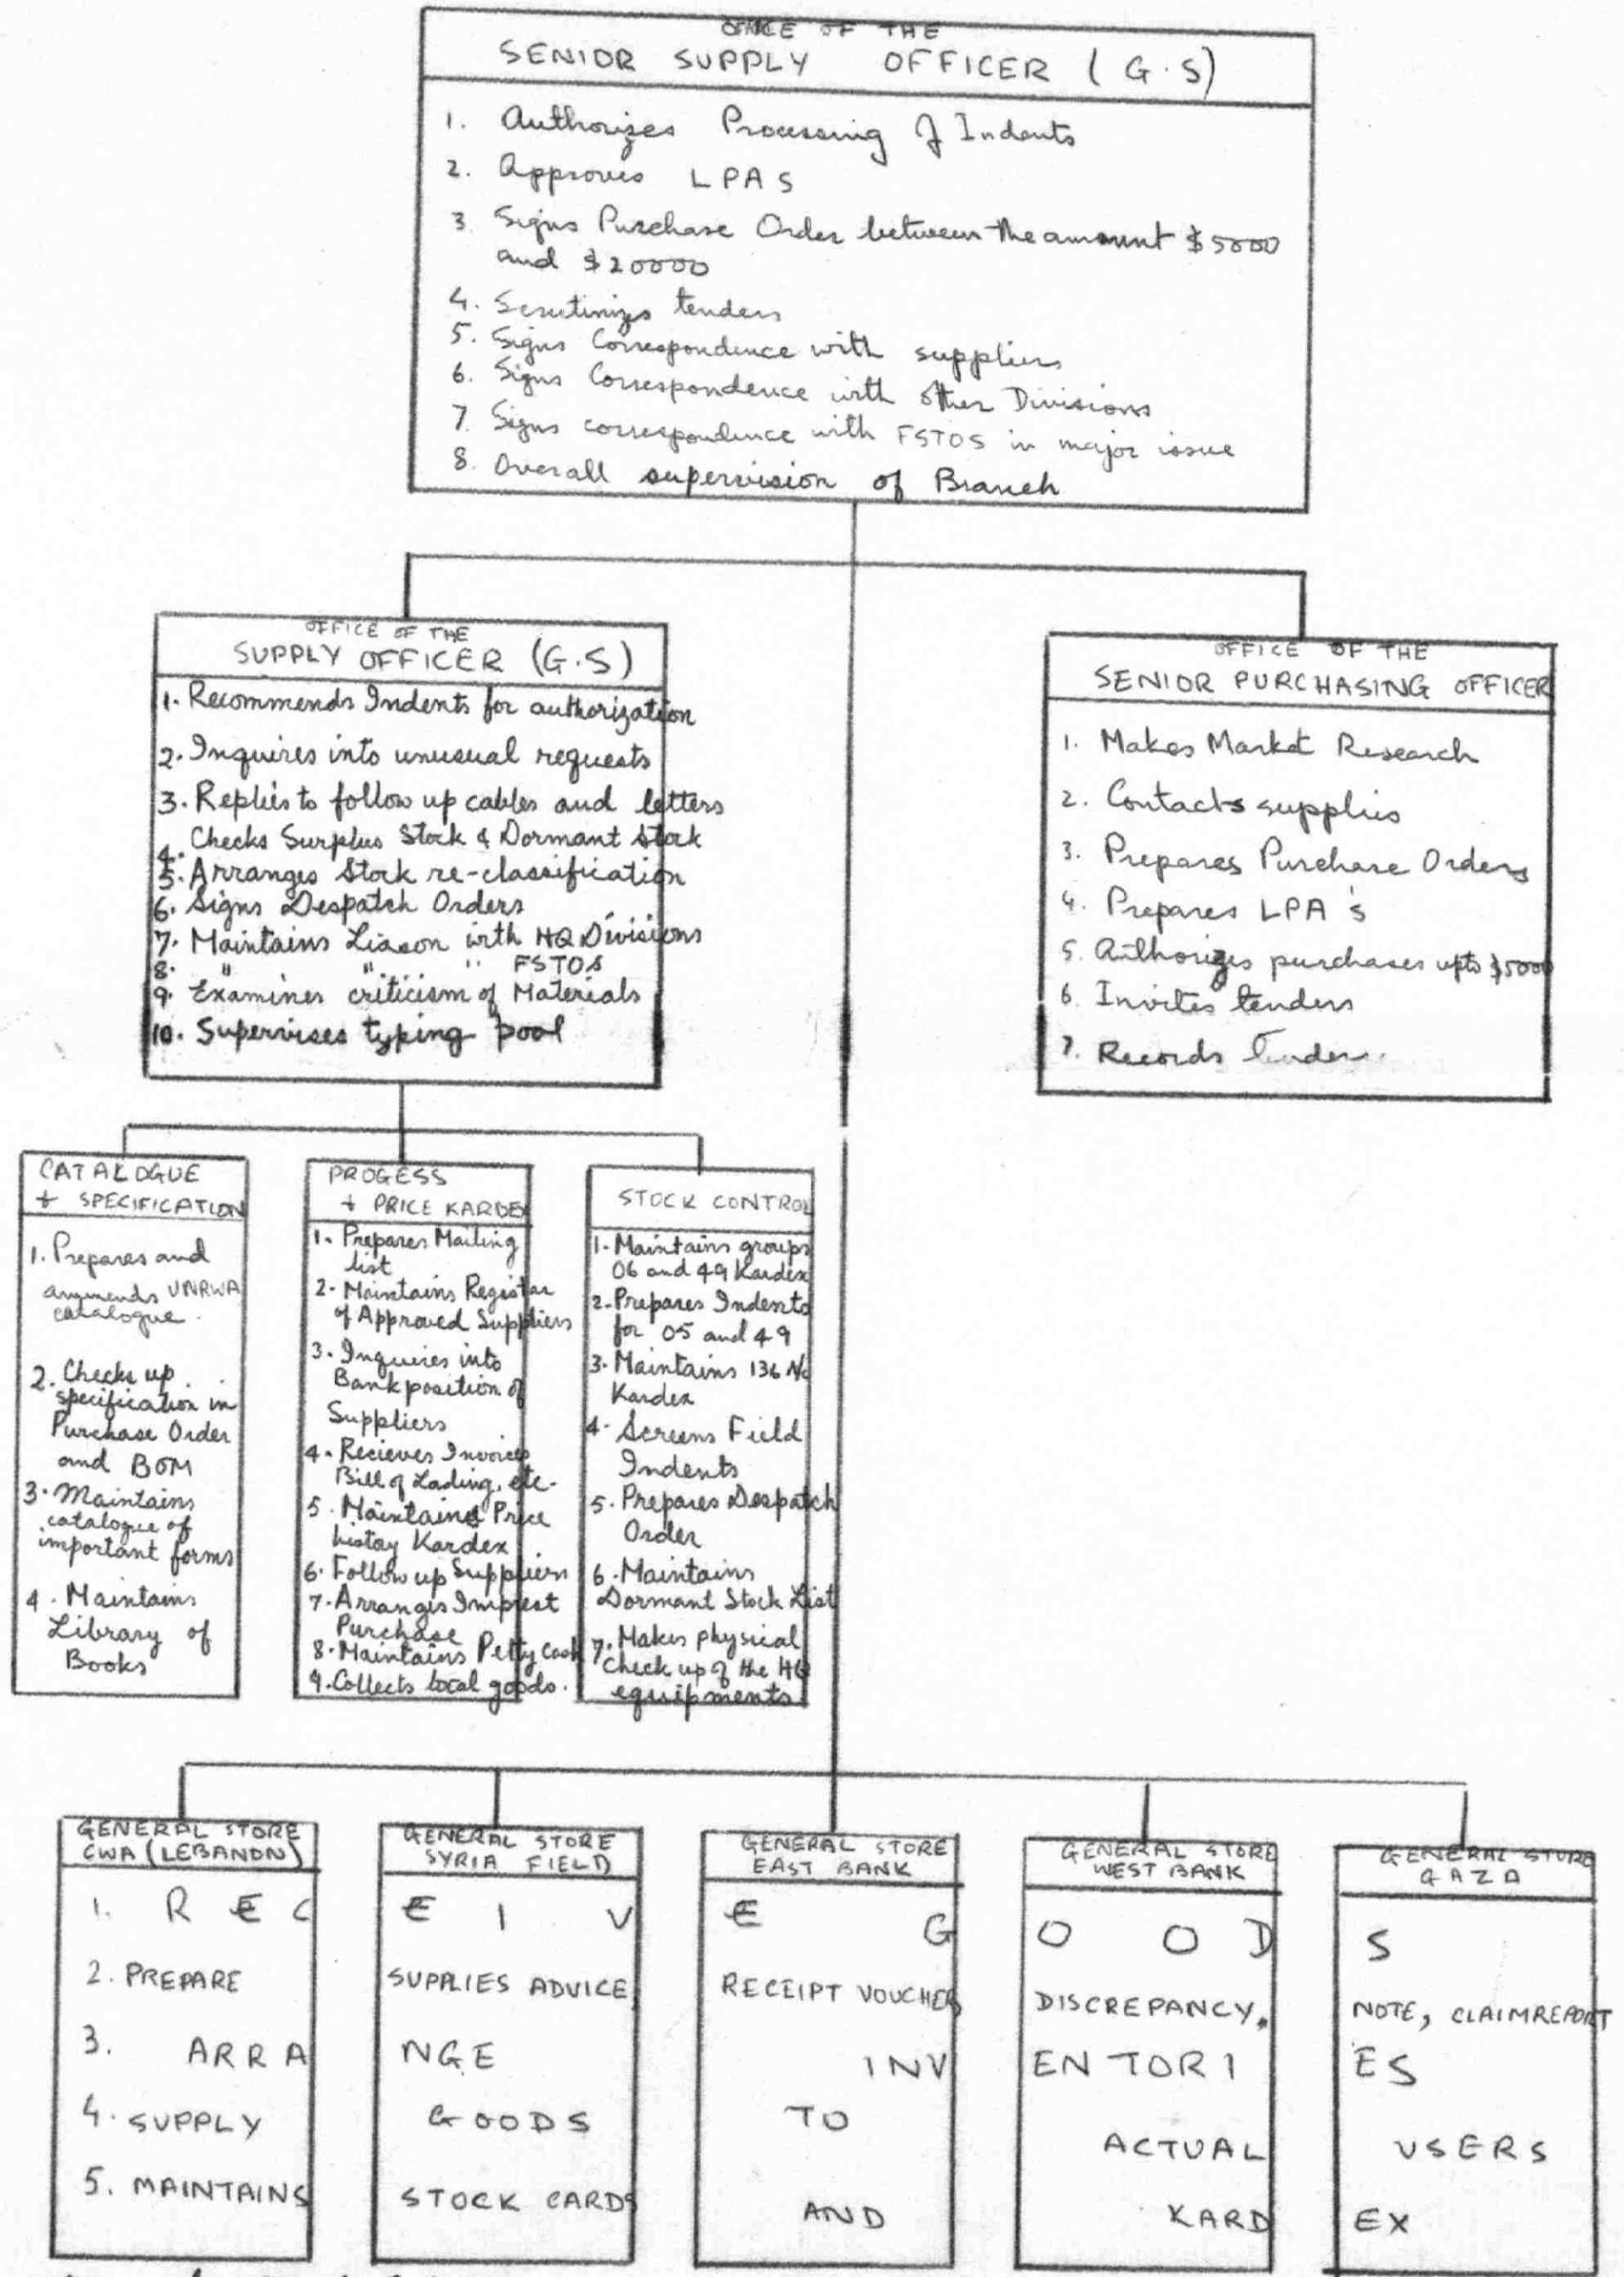 OFFICE OF THE
SENIOR SUPPLY OFFICER (G.S)
1. Authorizes Processing of Indents
2. Approves LPAS
3 Signs Purchase Order between the amount $5000
and $20000
4. Scrutinizes tenders
5. Signs Correspondence with suppliers
6. Signs Correspondence with other Divisions
7. Signs correspondence with FSTOS in major issue
8. Overall supervision of Branch
OFFICE OF THE
SUPPLY OFFICER (G.S)
1. Recommends Indents for authorization
2. Inquires into unusual requests
3. Replies to follow up cables and letters
4. Checks Surplus Stock & Dormant Stock
5. Arranges Stock re-classification
6. Signs Despatch Orders
7. Maintains Liason with HQ Divisions
8. " " " FSTOS
9. Examines criticism of Materials
10. Supervises typing pool
OFFICE OF THE
SENIOR PURCHASING OFFICER
1. Makes Market Research
2. Contacts supplies
3. Prepares Purchase Orders
4. Prepares LPA's
5. Authorizes purchases upto $5000
6. Invites tenders
7. Records tender.
CATALOGUE
+ SPECIFICATION
1. Prepares and
ammends UNRWA
catalogue.
2. Checks up
specification in
Purchase Order
and BOM
3. Maintains
catalogue of
important forms
4. Maintains
Library of
Books
PROGESS
+ PRICE KARDEX
1. Prepares Mailing
list
2. Maintains Registar
of Approved Suppliers
3. Inquires into
Bank position of
Suppliers
4. Recieves Invoices
Bill of Lading, etc.
5. Maintains Price
histoy Kardex
6. Follow up Suppliers
7. Arranges Imprest
Purchase
8. Maintains Petty cash
9. Collects local goods.
STOCK CONTROL
1. Maintains groups
06 and 49 Kardex
2. Prepares Indents
for 05 and 49
3. Maintains 136 A/c
Kardex
4. Screens Field
Indents
5. Prepares Despatch
Order
6. Maintains
Dormant Stock List
7. Makes physical
check up of the HQ
equipments
GENERAL STORE
CWA (LEBANON)
GENERAL STORE
SYRIA FIELD
GENERAL STORE
EAST BANK
GENERAL STORE
WEST BANK
GENERAL STORE
GAZA
1. R E C E I V E G O O D S
2. PREPARE SUPPLIES ADVICE, RECEIPT VOUCHER DISCREPANCY, NOTE, CLAIM REPORT
3. ARRA NGE INV EN TORI ES
4. SUPPLY GOODS TO ACTUAL USERS
5. MAINTAINS STOCK CARDS AND KARD EX